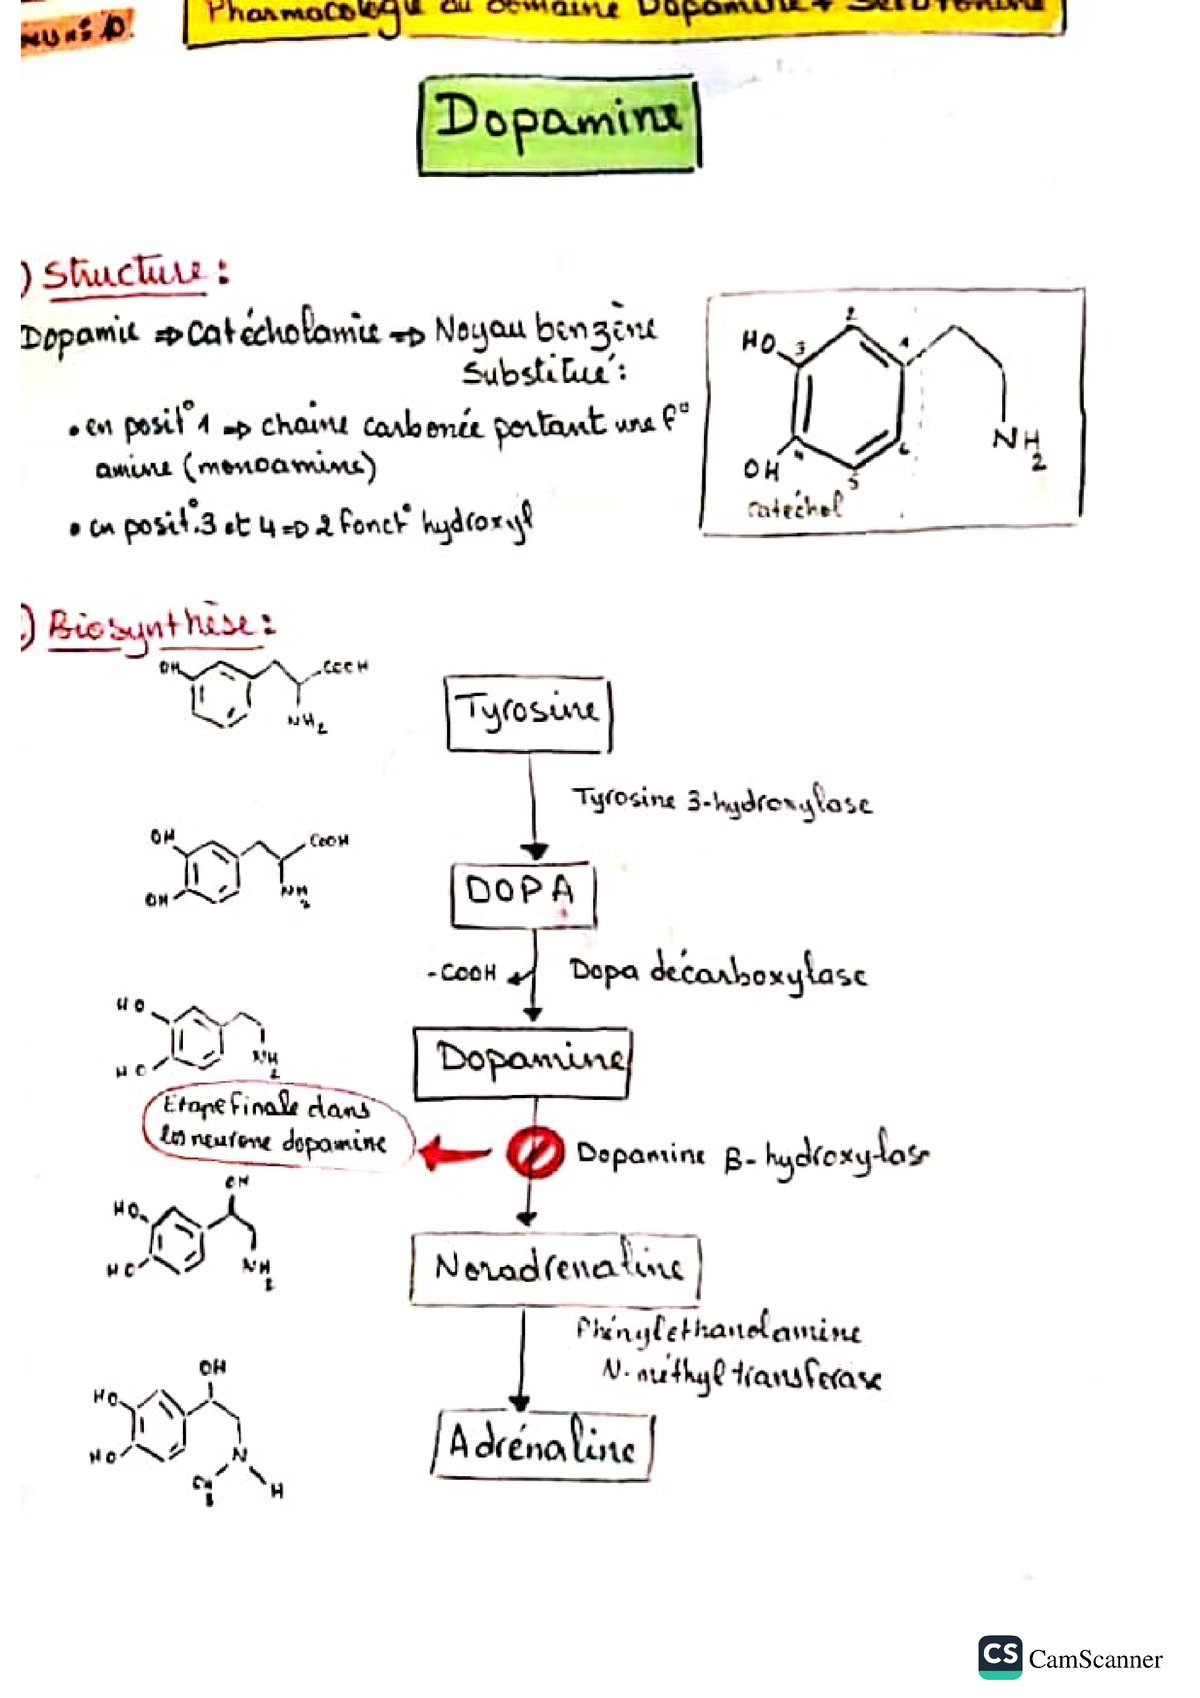 Pharmacologie du domaine Dopamine + Serotonine
Dopamine
) Structure :
Dopamie ⇒ Catécholamie ⇒ Noyau benzène
Substitué :
• en posit° 1 ⇒ chaine carbonée portant une f°
amine (monoamine)
• en posit°.3 et 4 ⇒ 2 fonct° hydroxyl
HO 3 2 1
4 5 6
OH
NH2
catéchol
) Biosynthèse :
OH COOH
NH2
Tyrosine
Tyrosine 3-hydroxylase
OH COOH
OH NH2
DOPA
-COOH Dopa décarboxylase
HO
HO NH2
Dopamine
Etape finale dans
les neurone dopamine
Dopamine β-hydroxylas
OH
HO
HO NH2
Noradrenaline
Phénylethanolamine
N-méthyltransferase
OH
HO
HO N
H
Adrénaline
CS CamScanner